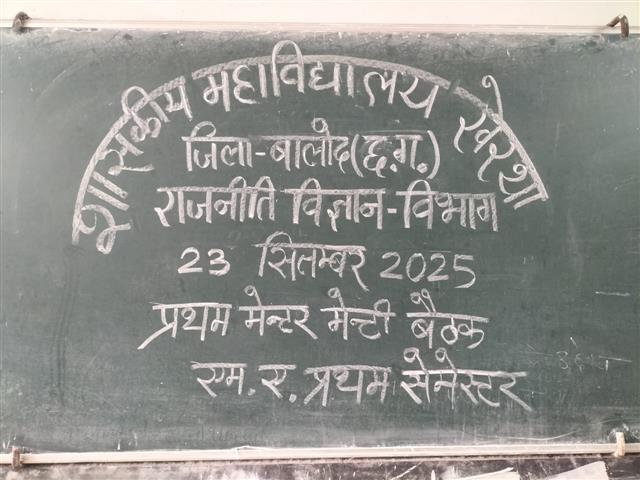 शासकीय महाविद्यालय खेरथा
जिला-बालोद(छ.ग.)
राजनीति विज्ञान-विभाग
23 सितम्बर 2025
प्रथम मेन्टर मेन्टी बैठक
एम.ए. प्रथम सेमेस्टर